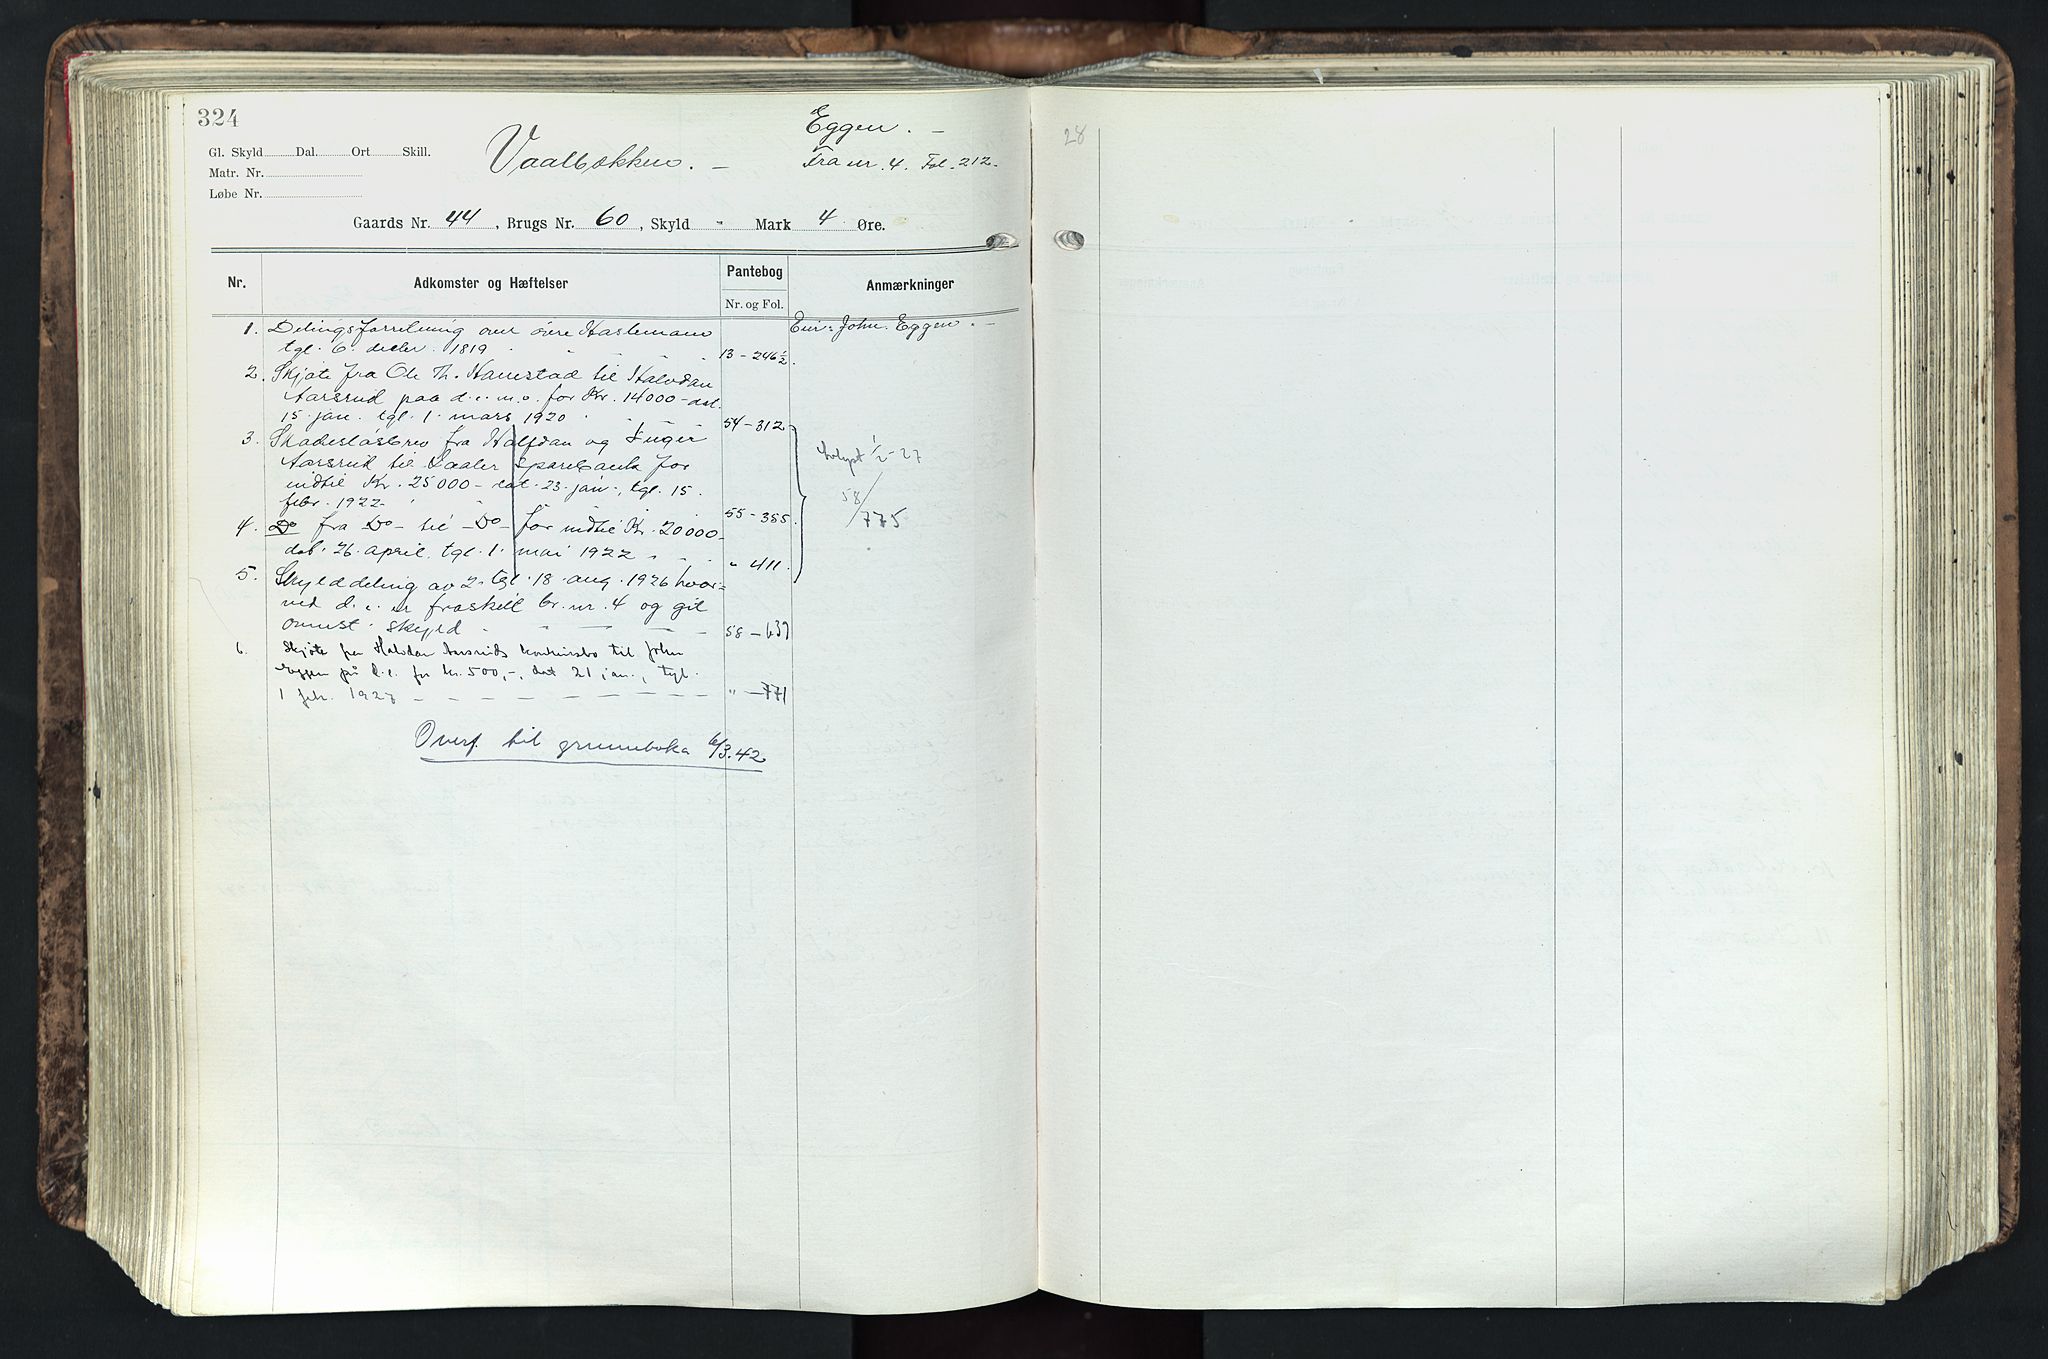 324
Eggen. –
Gl. Skyld Dal. Ort Skill.
Vaalbækken. –
Fra nr. 4. Fol. 212.
Matr. Nr.
Løbe Nr.
Gaards Nr. 44, Brugs Nr. 60, Skyld " Mark 4 Øre.
Nr. Adkomster og Hæftelser Pantebog Anmærkninger
Nr. og Fol.
1. Delingsforretning over øvre Haslemoen Eier: John Eggen. –
tgl. 6. decbr. 1819 13 – 246½
2. Skjøte fra Ole Th. Hamstad til Halvdan
Aarsrud paa d. e. m. o. for Kr. 14000 – dat.
15. jan. tgl. 1. mars 1920 54 – 312
3. Skadesløsbrev fra Halfdan og Inger
Aarsrud til Vaaler Sparebank for
indtil Kr. 25000 – dat. 23. jan., tgl. 15.
febr. 1922 55 – 355
Avlyst 1/2 – 27
58/775
4. Do fra Do – til – Do – for indtil Kr. 20000 –
dat. 26. april. tgl. 1. mai 1922 " 411
5. Skylddeling av 2. tgl. 18. aug. 1926 hvor-
ved d. e. er fraskilt br. nr. 4 og git
ovennst. skyld 58 – 637
6. Skjøte fra Halvdan Aarsruds konkursbo til John
Eggen på d. e. for kr. 500,-, dat 21 jan., tgl.
1 febr. 1927 " – 771
Overf. til grunnboka 6/3.42
28